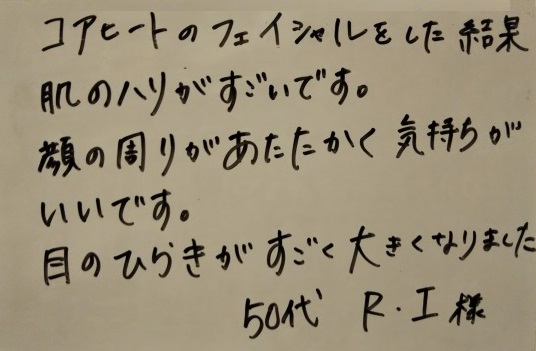 コアヒートのフェイシャルをした結果
肌のハリがすごいです。
顔の周りがあたたかく気持ちが
いいです。
目のひらきがすごく大きくなりました
50代 R・I様